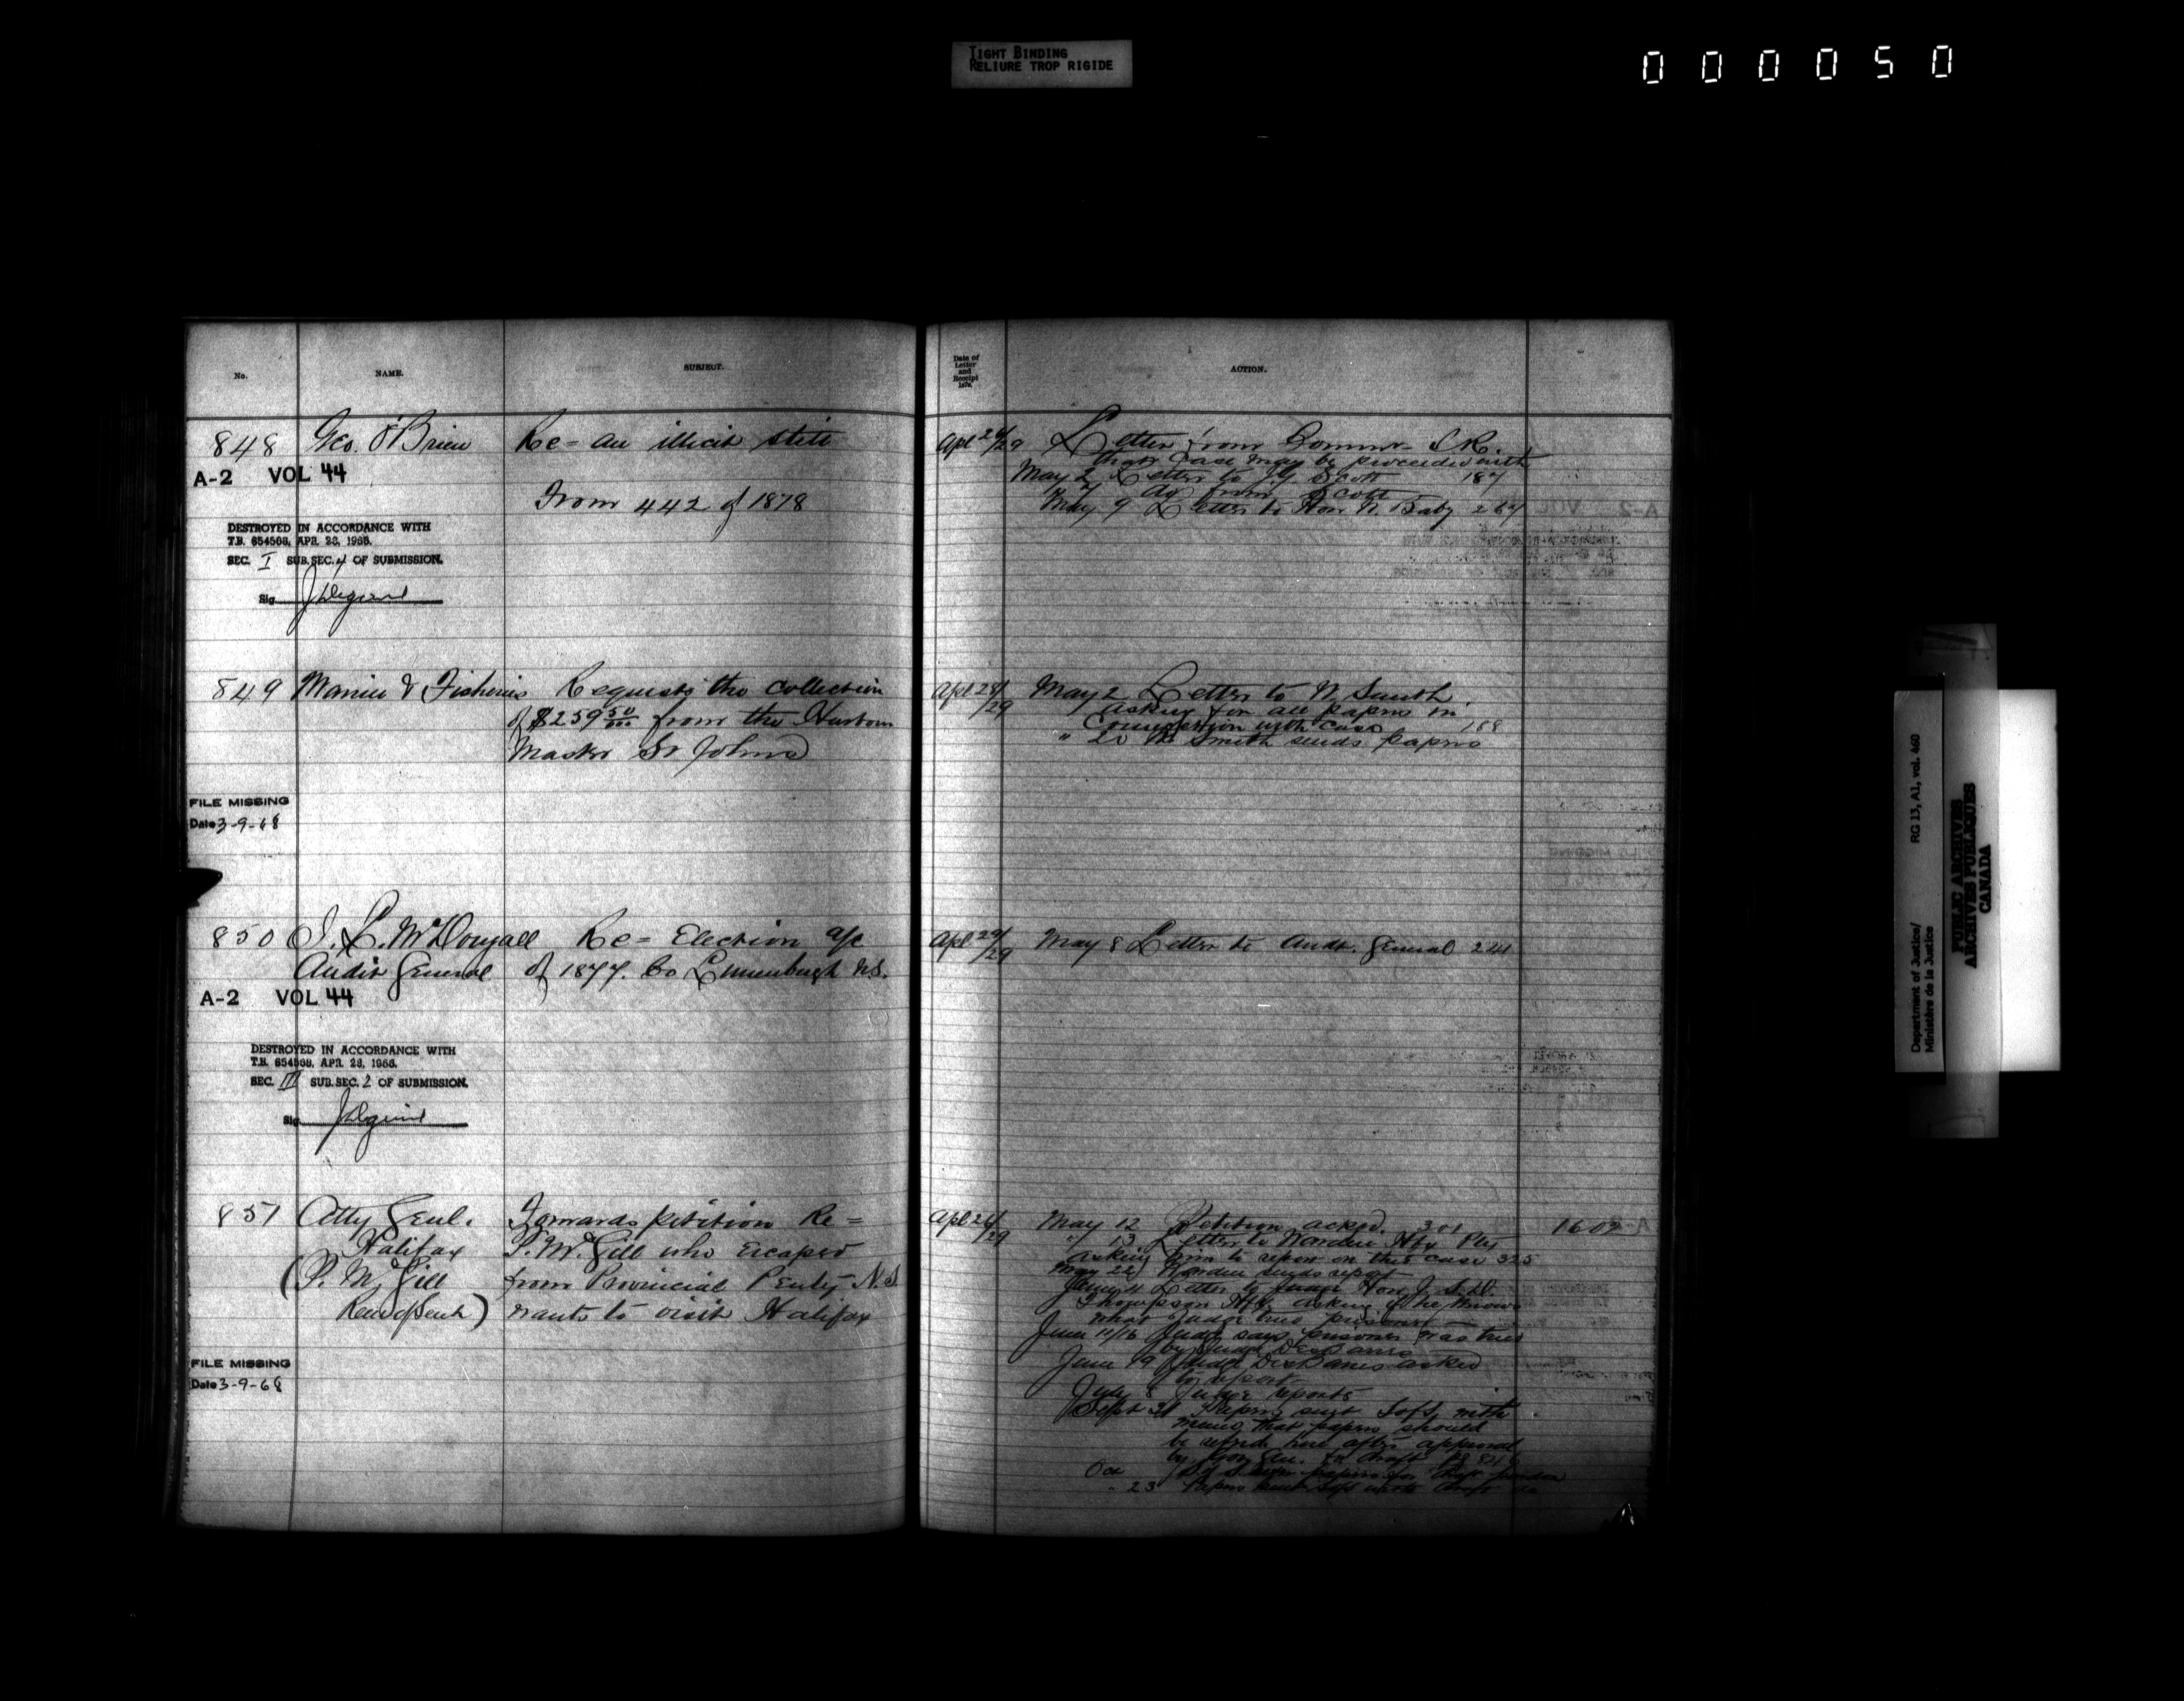 TIGHT BINDING
RELIURE TROP RIGIDE
000050
No. NAME. SUBJECT.
Date of
Letter
and
Receipt
187
ACTION.
848 Geo. O'Brien Re = an illicit still
A-2 VOL 44
From 442 of 1878
DESTROYED IN ACCORDANCE WITH
T.B. 654568, APR. 28, 1966.
SEC. I SUB. SEC. 4 OF SUBMISSION.
Sig
Apl 26/29 Letter from Commr I.R.
that case may be proceeded with
May 2 Letter to J G Scott 187
" 7 do from Scott
May 9 Letter to Hon N. Baby 267
849 Marine & Fisheries Requests the collection
of $259 50/100 from the Harbour
Master St Johns
FILE MISSING
Date 3-9-68
Apl 28/29 May 2 Letter to W Smith
asking for all papers in
Connection with case 188
" 20 W Smith sends papers
850 J. L. McDougall Re = Election a/c
Audit General of 1877. Co Lunenburgh N.S.
A-2 VOL 44
DESTROYED IN ACCORDANCE WITH
T.B. 654568, APR. 28, 1966.
SEC. III SUB. SEC. 2 OF SUBMISSION.
Sig
Apl 29/29 May 8 Letter to Audt. General 241
851 Atty Genl. Forwards petition Re =
Halifax P. McGill who escaped
(P. McGill from Provincial Penty N.S
) wants to visit Halifax
FILE MISSING
Date 3-9-68
Apl 26/29 May 12 Petition acked. 301 1602
" 13 Letter to Warden Hfx Pty
asking him to report on this case 325
May 22 Warden sends report
June 4 Letter to Judge Hon J. S. D.
Thompson Hfx asking if he knows
what Judge tried prisoner
June 14/16 Judge says prisoner was tried
by Judge DesBarres
June 19 Judge DesBarres asked
to report
July 8 Judge reports
Sept papers sent SofS with
memo that papers should
be here after approval
by Gov Gen. for draft
Oct papers for draft pardon
" 23 Papers sent SofS with draft
Department of Justice/
Ministère de la Justice
RG 13, A1, vol. 460
PUBLIC ARCHIVES
ARCHIVES PUBLIQUES
CANADA